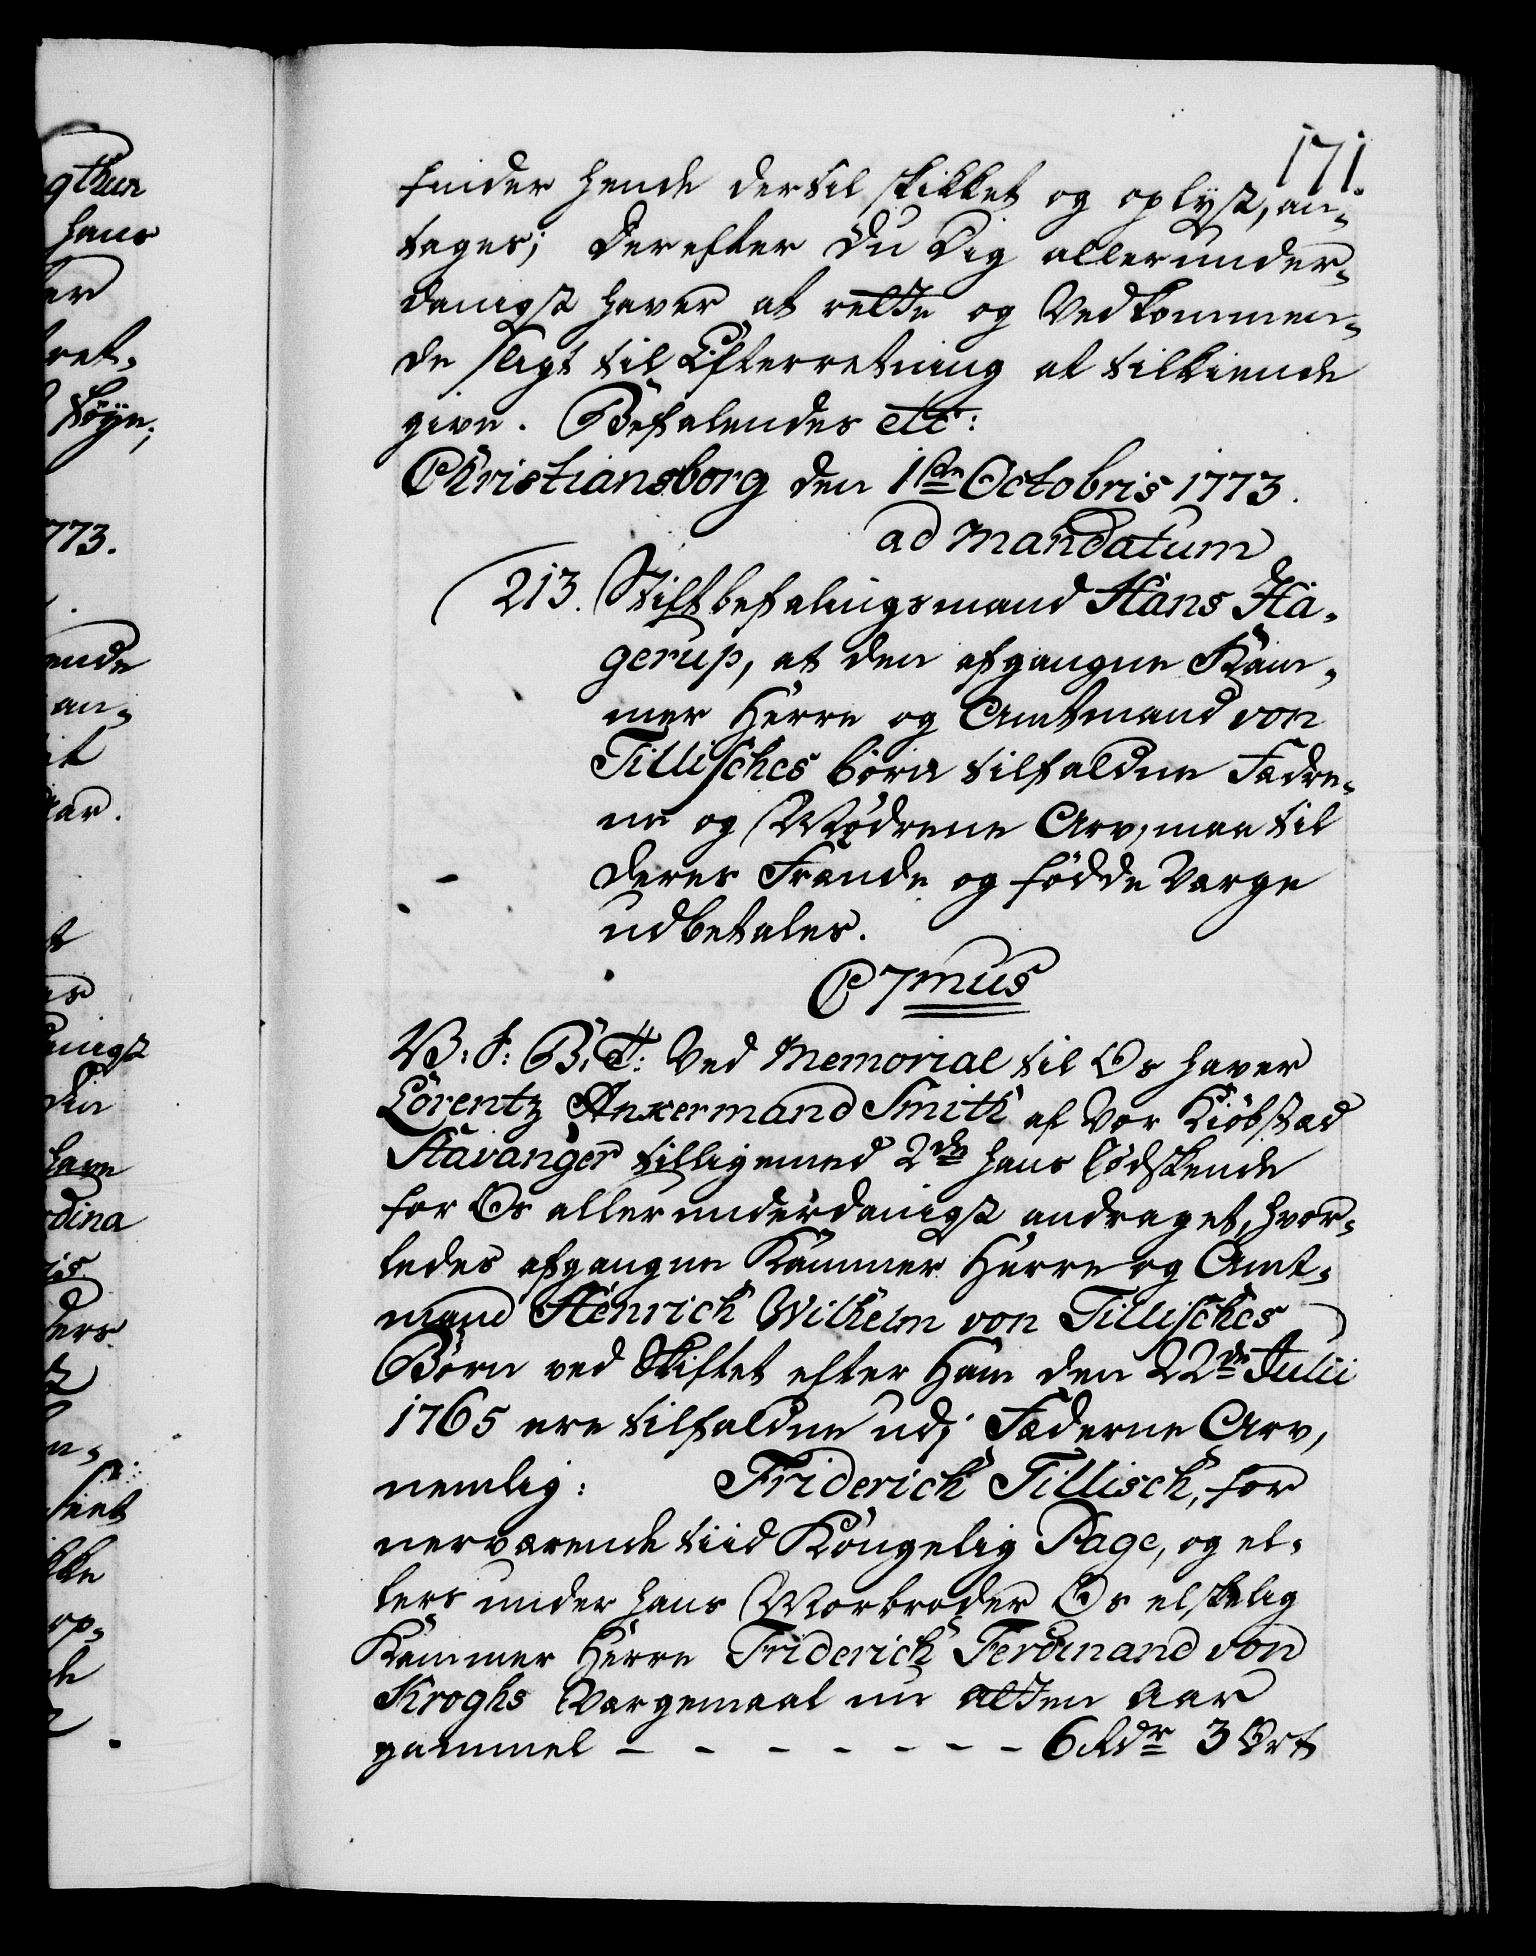 171.
finder hende dertil skikket og oplyst, an-
tages; Derefter Du Dig allerunder-
danigst haver at rette og Vedkommen-
de sligt til Efterretning at tilkiende
give. Befalendes etc:
Christiansborg den 1ste Octobris 1773.
ad Mandatum
213. Stiftbefalingsmand Hans Ha-
gerup, at den afgangne Kam-
mer Herre og Amtmand von
Tillisches börn tilfaldne Fædre-
ne og Mödrene Arv, maa til
deres Frænde og födde Værge
udbetales.
C 7mus
V: S: B: T: Ved Memorial til Os haver
Lorentz Ankermand Smith af Vor Kiöbstad
Stavanger tilligemed 2de hans Södskende
for Os allerunderdanigst andraget, hvor-
ledes afgangne Kammer Herre og Amt-
mand Henrich Wilhelm von Tillisches
Börn ved Skiftet efter Ham den 22de Julii
1765 ere tilfaldne udj Fæderne Arv,
nemlig: Friderich Tillisch, for
nerværende tiid Kongelig Page, og el-
lers under hans Morbroder Os elskelig
Kammer Herre Friderich Ferdinand von
Kroghs Værgemaal nu atten Aar
gammel - - - - - - - 6 Rdr 3 Ort
ogthun
hans
er
ret-
Söyn;
773.
ende
an-
it
ar.
t
er
anigst
din
have
dina
is
ders
n-
sent
kke
op-
de